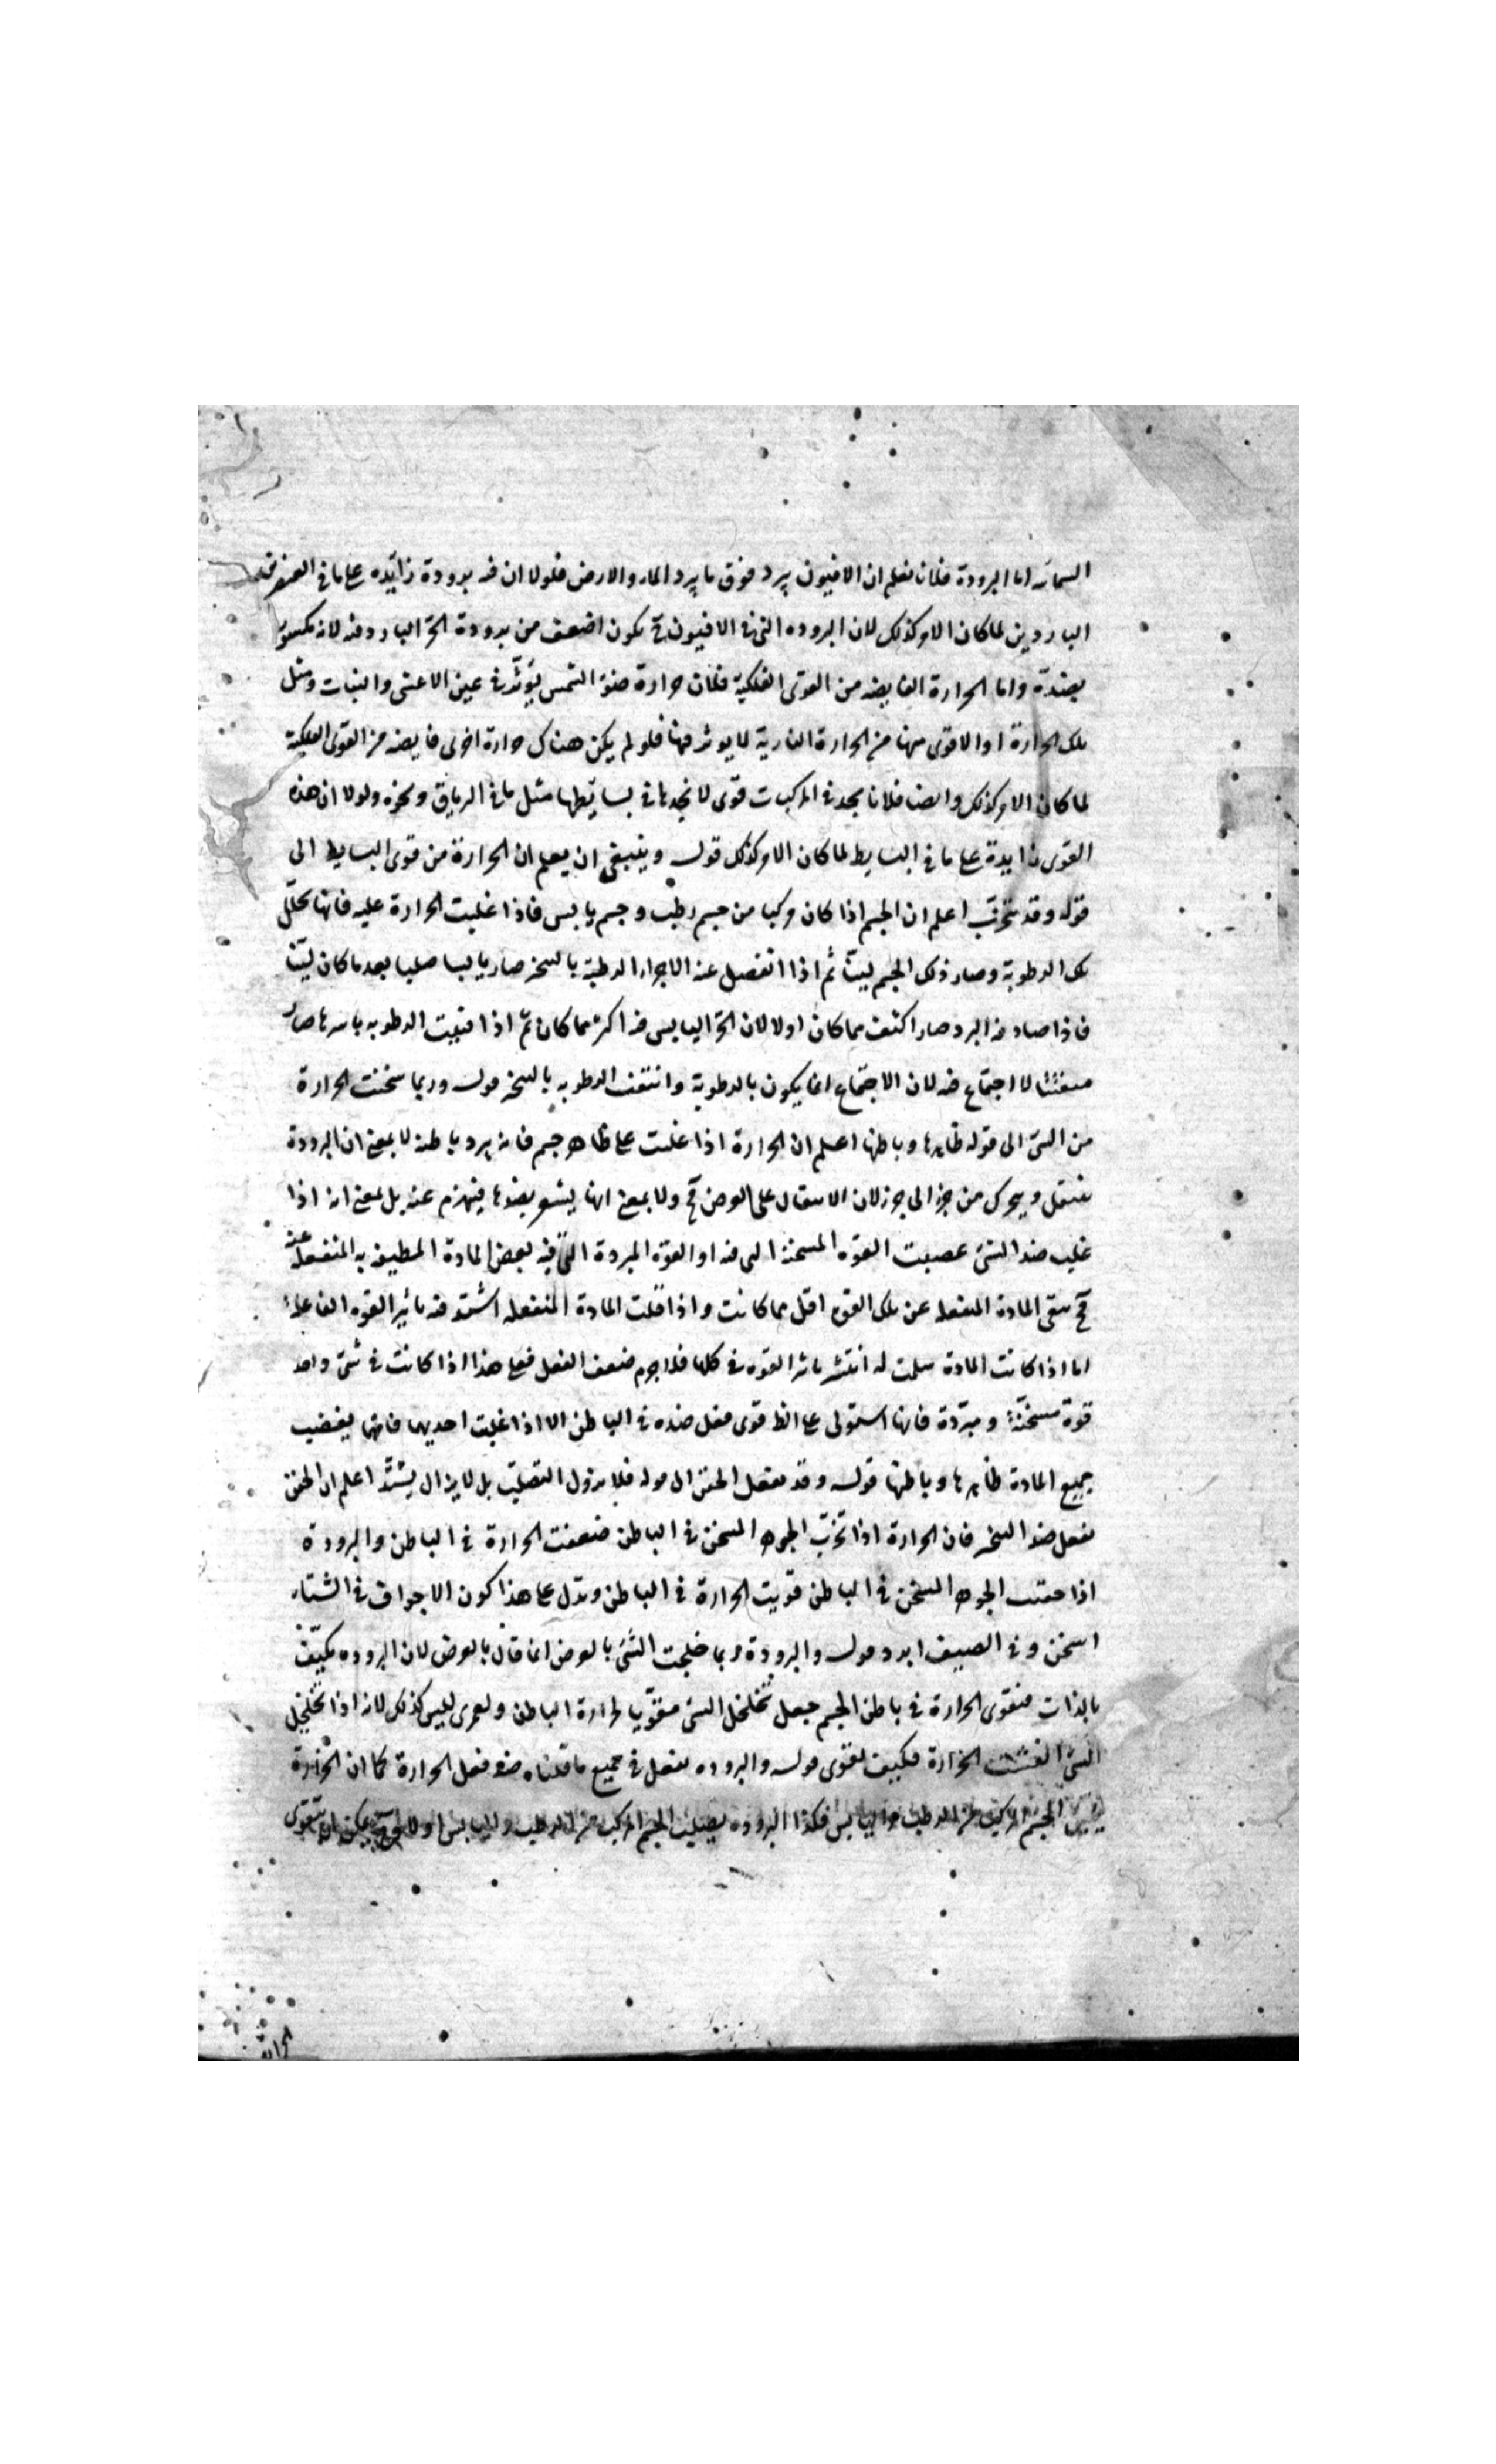 السمائه اما البرودة فلانا نعلم ان الافيون يبرد فوق ما يبرد الماء والارض فلولا ان فيه برودة زايده على ما في العنصرين
الباردين لما كان الامر كذلك لان البروده التى في الافيون ح يكون اضعف من برودة الجزء البارد فيه لانه مكسور
بضدّه واما الحرارة الفايضه من القوى الفلكية فلان حرارة ضوء الشمس يؤثّر في عين الاعشى والنبات ومثل
تلك الحرارة او الاقوى منها من الحرارة النارية لا يوثر فيها فلو لم يكن هناك حرارة اخرى فايضه من القوى الفلكية
لما كان الامر كذلك وايضا فلانا نجد في المركبات قوى لا نجدها في بسايطها مثل ما في الترياق ونحوه ولولا ان هذه
القوى زايدة على ما في البسايط لما كان الامر كذلك قوله وينبغى ان يعلم ان الحرارة من قوى البسايط الى
قوله وقد اعلم ان الجسم اذا كان مركبا من جسم رطب وجسم يابس فاذا غلبت الحرارة عليه فانها تحلّل
تلك الرطوبة وصار ذلك الجسم ليّنا ثم اذا انفصل عنه الاجزاء الرطبة بالتسخن صار يابسا صلبا بعد ما كان ليّنا
فاذا صادفه البرد صار اكثف مما كان اولا لان الجزء اليابس فيه اكثر مما كان ثمّ اذا فنيت الرطوبه باسرها صار
متفتتا لا اجتماع فيه لان الاجتماع انما يكون بالرطوبة وانتفت الرطوبه بالتسخن قوله وربما سخنت الحرارة
من الشئ الى قوله ظاهرها وباطنها اعلم ان الحرارة اذا غلبت على ظاهر جسم فانه يبرد باطنه لا بمعنى ان البرودة
تنتقل ويتحرك من جزء الى جزء لان الانتقال على العرض مح ولا بمعنى انها يشعر بضدها فينهزم عنه بل بمعنى انه اذا
غلب ضد الشئ عصبت القوه المسخنة التى فيه او القوة المبردة التى فيه بعض المادة المطيفة به المنفعلة عنه
ح يبقى المادة المنفعله عن تلك القوه اقل مما كانت واذا قلت المادة المنفعله اشتد فيه تاثير القوه الفاعلة
اما اذا كانت المادة سلمت له انتشر تاثير القوه في كلها فلا جرم ضعف الفعل فعلى هذا اذا كانت في شئ واحد
قوة مسخّنة ومبرّدة فايها استولى على الظ قوى فعل ضده في الباطن الا اذا غلبت احديهما فانها يغصب
جميع المادة ظاهرها وباطنها قوله وقد يفعل الحقن الى قوله فلا يزول التصليب بل لا يزال يشتدّ اعلم ان الحقن
يفعل ضد التسخن فان الحرارة اذا الجوهر المسخن في الباطن ضعفت الحرارة في الباطن والبرودة
اذا حقنت الجوهر المسخن في الباطن قويت الحرارة في الباطن ويدل على هذا كون الاجواف في الشتاء
اسخن وفي الصيف ابرد قوله والبرودة ربما خلخلت الشئ بالعرض انما قال بالعرض لان البروده مكثف
بالذات فتقوى الحرارة في باطن الجسم جعل تخلخل الشئ مقوّيا لحرارة الباطن ولعمرى ليس كذلك لانه اذا تخلخل
الشئ انفشت الحرارة فكيف يقوى قوله والبروده يفعل في جميع ما قلناه ضد فعل الحرارة كما ان الحرارة
الجسم المركب من الرطب واليابس فكذا البروده يصلب الجسم المركب من الرطب واليابس اولا